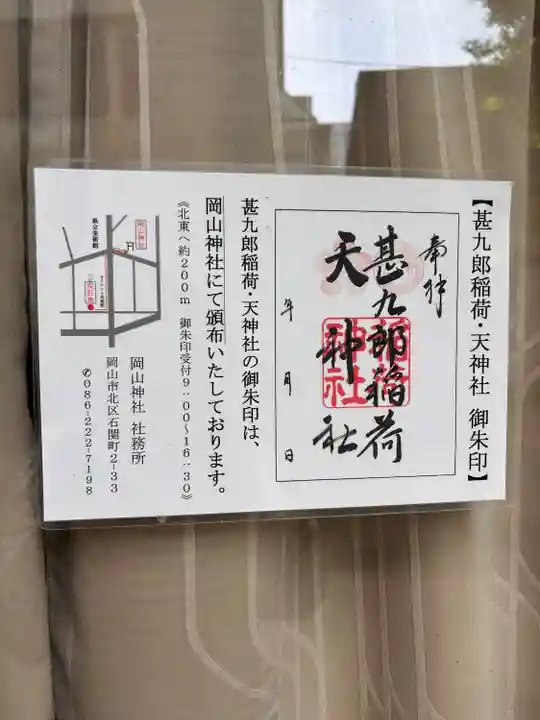 【甚九郎稲荷・天神社　御朱印】
奉拝
甚九郎稲荷
天神社
年　月　日
甚九郎稲荷・天神社の御朱印は、
岡山神社にて頒布いたしております。
《北東へ約200m　御朱印受付9:00〜16:30》
岡山神社
県立美術館
岡山神社　社務所
岡山市北区石関町2-33
✆086-222-7198